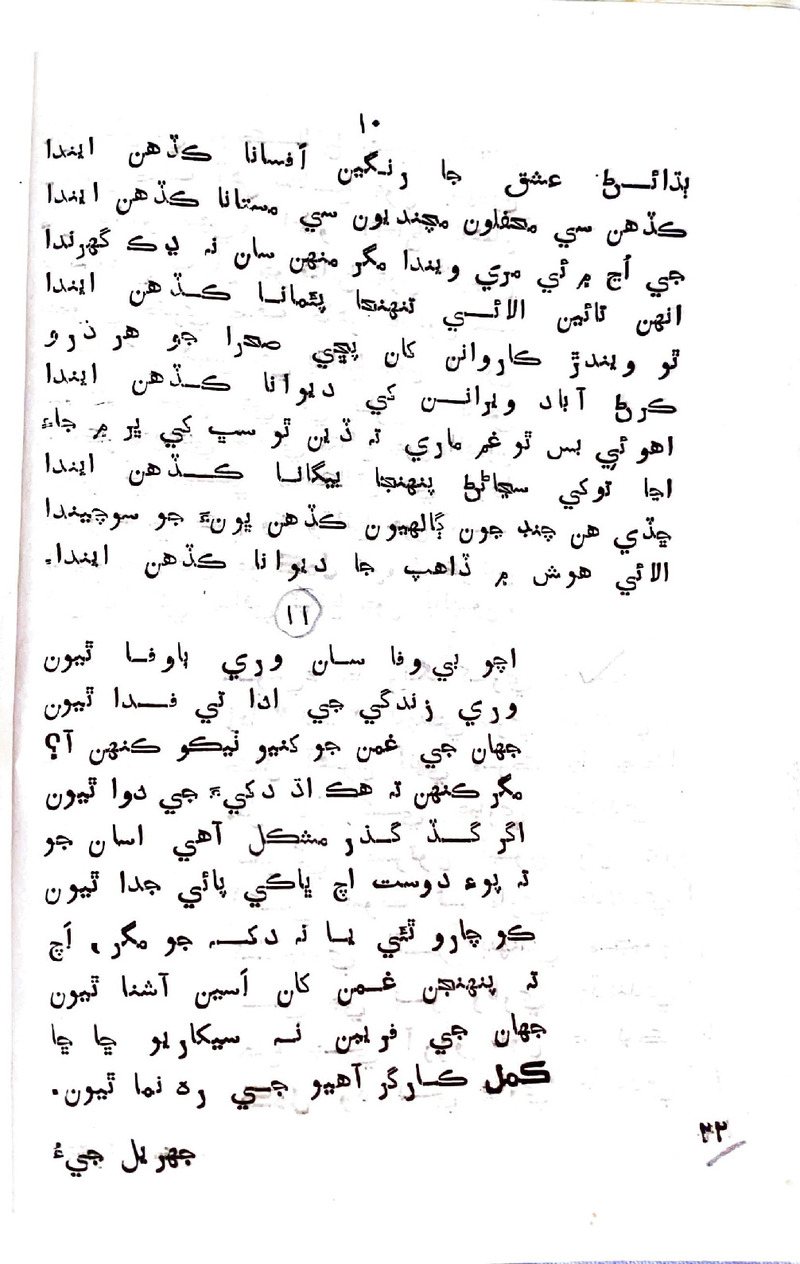 ١٠
ٻڌائڻ عشق جا رنگين افسانا ڪڏهن ايندا
ڪڏهن سي محفلون مچنديون سي مستانا ڪڏهن ايندا
جي اُڃ ۾ ئي مري ويندا مگر منهن سان نہ ڍڪ گهرندا
انهن تائين الائي تنهنجا پئمانا ڪڏهن ايندا
ٿو ويندڙ ڪاروانن کان پڇي صحرا جو هر ذرو
ڪرڻ آباد ويرانن کي ديوانا ڪڏهن ايندا
اهو ئي بس ٿو غم ماري تہ ڏين ٿو سڀ کي ڀر ۾ جاءِ
اڃا توکي سڃاڻڻ پنهنجا بيگانا ڪڏهن ايندا
ڇڏي هن چنڊ جون ڳالهيون ڪڏهن ڀونءَ جو سوچيندا
الائي هوش ۾ ڏاهپ جا ديوانا ڪڏهن ايندا.
١١
اچو بي وفا سان وري باوفا ٿيون
وري زندگي جي ادا تي فدا ٿيون
جهان جي غمن جو کنيو ٺيڪو ڪنهن آ؟
مگر ڪنهن تہ هڪ اڌ دکيءَ جي دوا ٿيون
اگر گڏ گذر مشڪل آهي اسان جو
تہ پوءِ دوست اچ ڀاڪي پائي جدا ٿيون
ڪو چارو ٿئي يا نہ دک جو مگر، اَچ
تہ پنهنجن غمن کان اَسين آشنا ٿيون
جهان جي فريبن نہ سيکاريو ڇا ڇا
ڪمل ڪارگر آهيو جي ره نما ٿيون.
٣٢
جهريل جيءُ